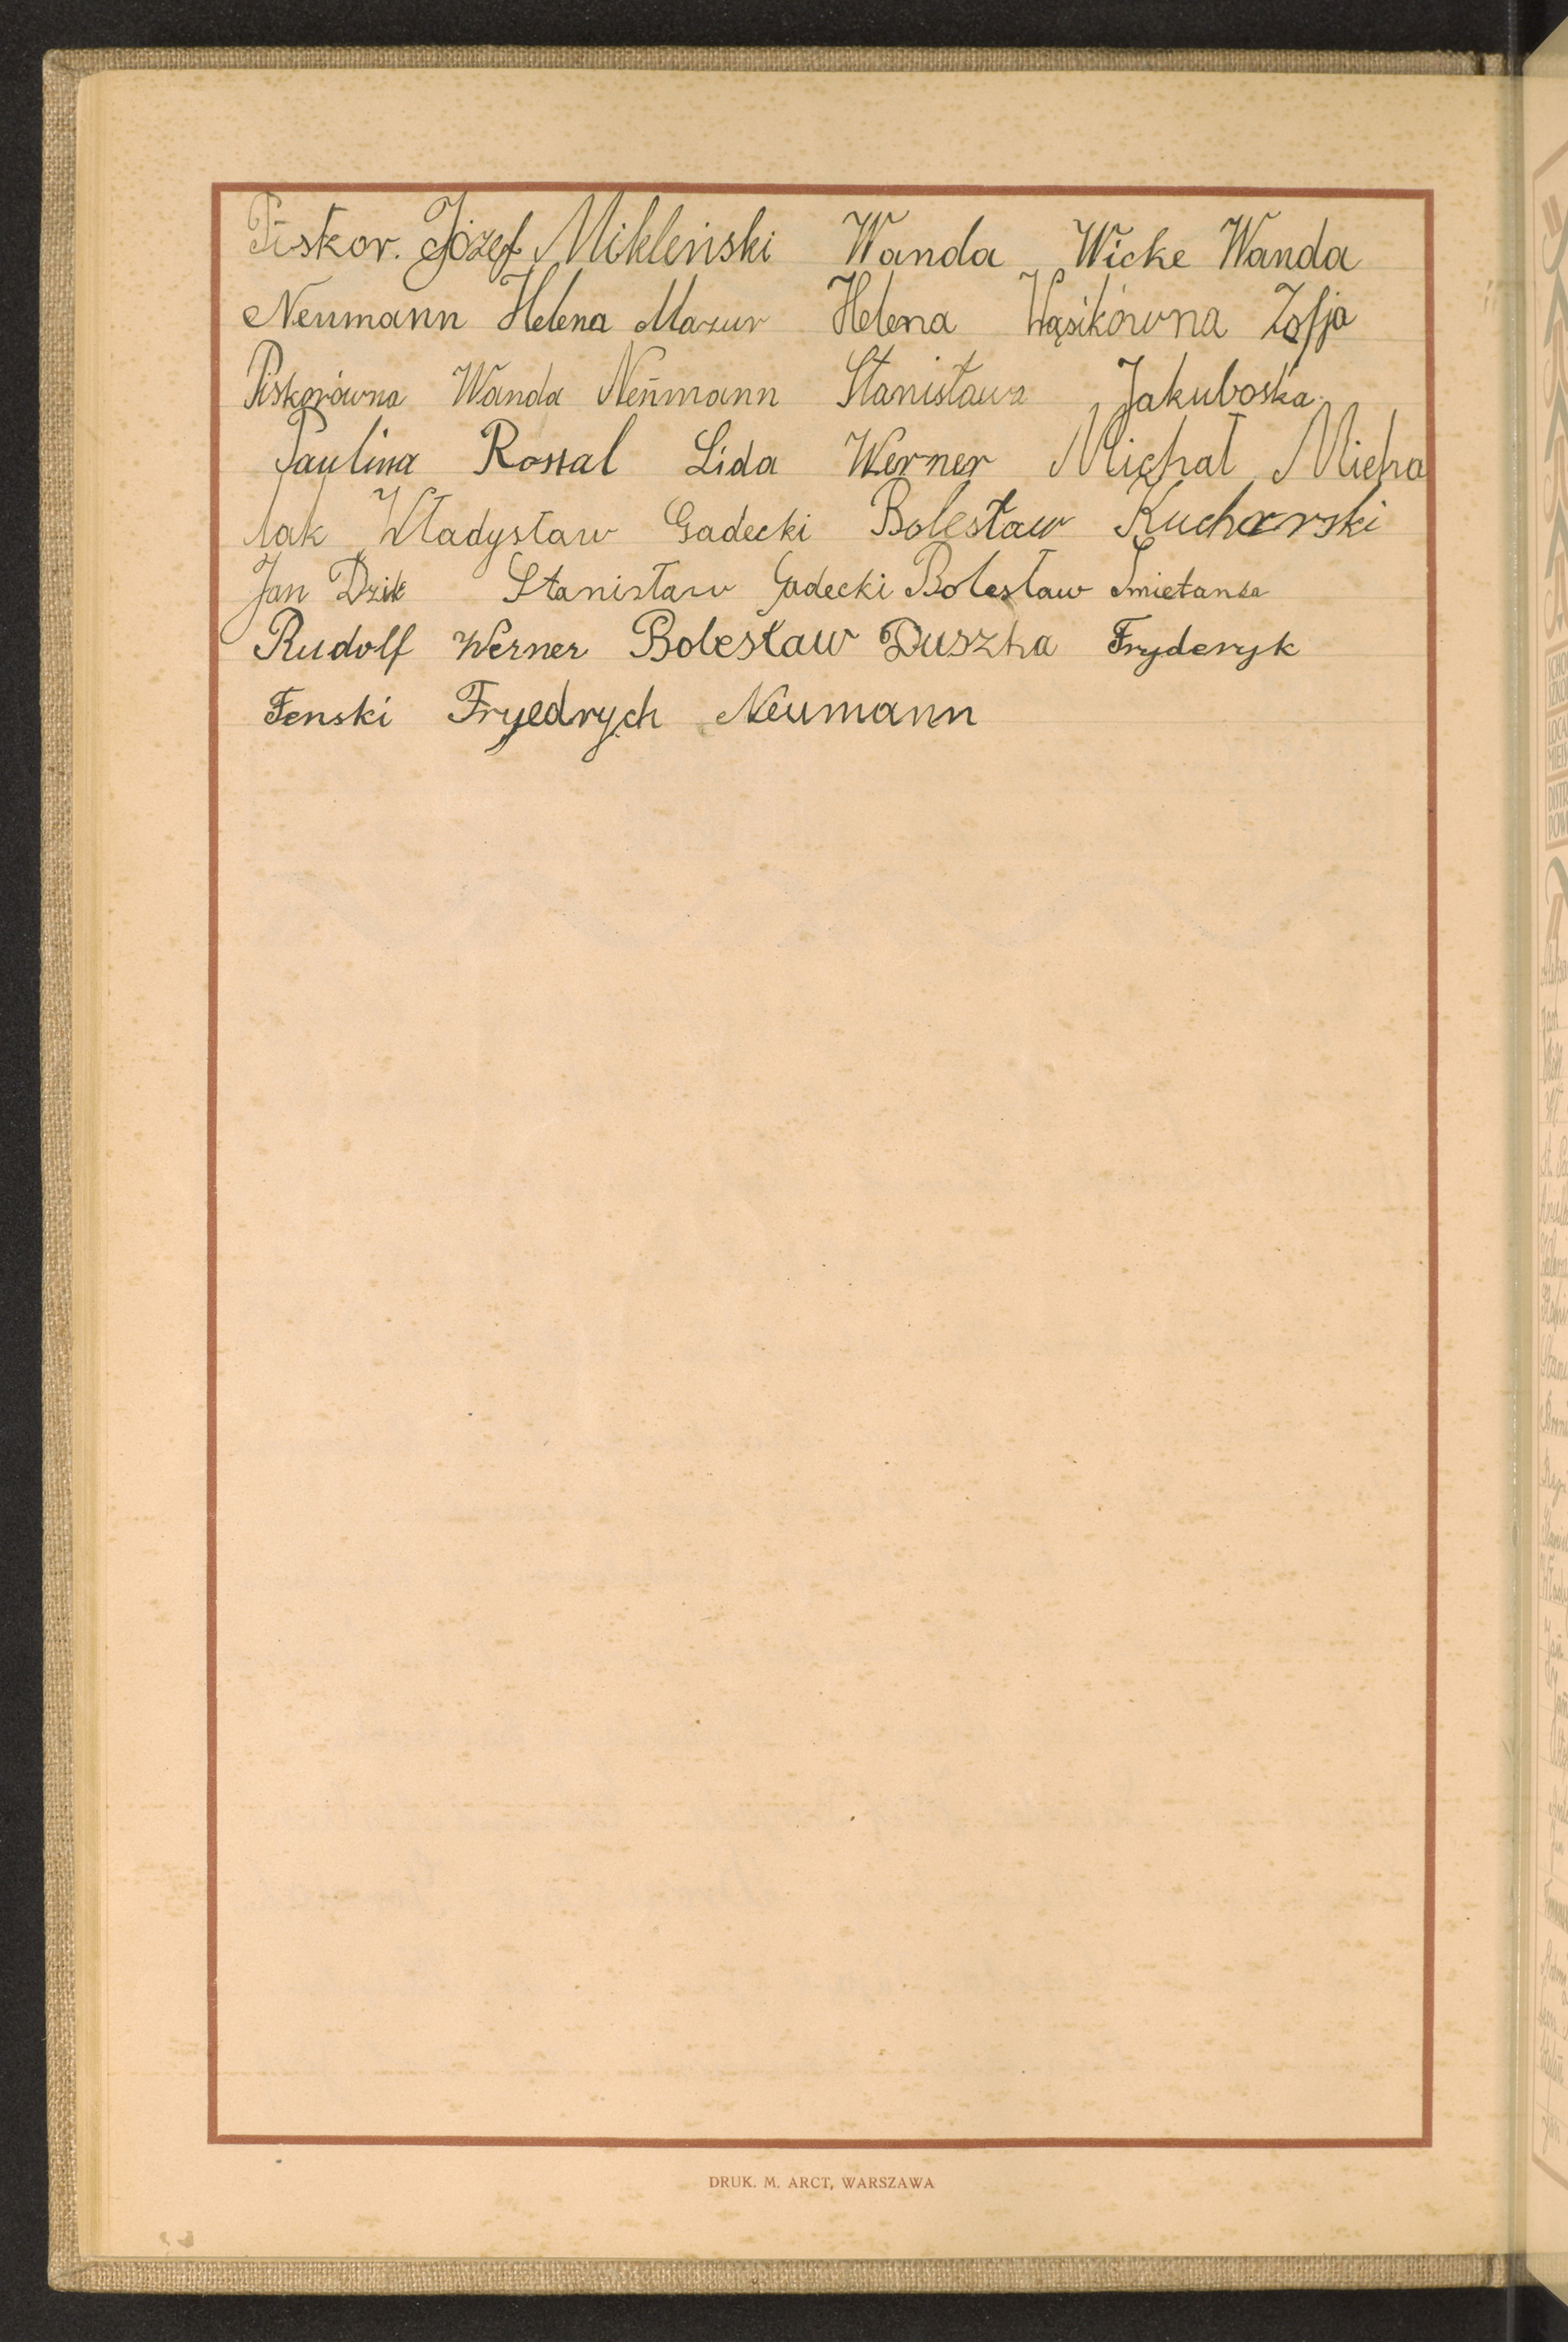 Piskor. Józef Mikleński Wanda Wicke Wanda
Neumann Helena Mazur Helena Wąsikówna Zofja
Piskorówna Wanda Neumann Stanisława Jakuboska.
Paulina Rossal Lida Werner Michał Micha
lak Władysław Gadecki Bolesław Kucharski
Jan Dzik Stanisław Gadecki Bolesław Śmietanka
Rudolf Werner Bolesław Duszka Fryderyk
Fenski Fryedrych Neumann
DRUK. M. ARCT, WARSZAWA